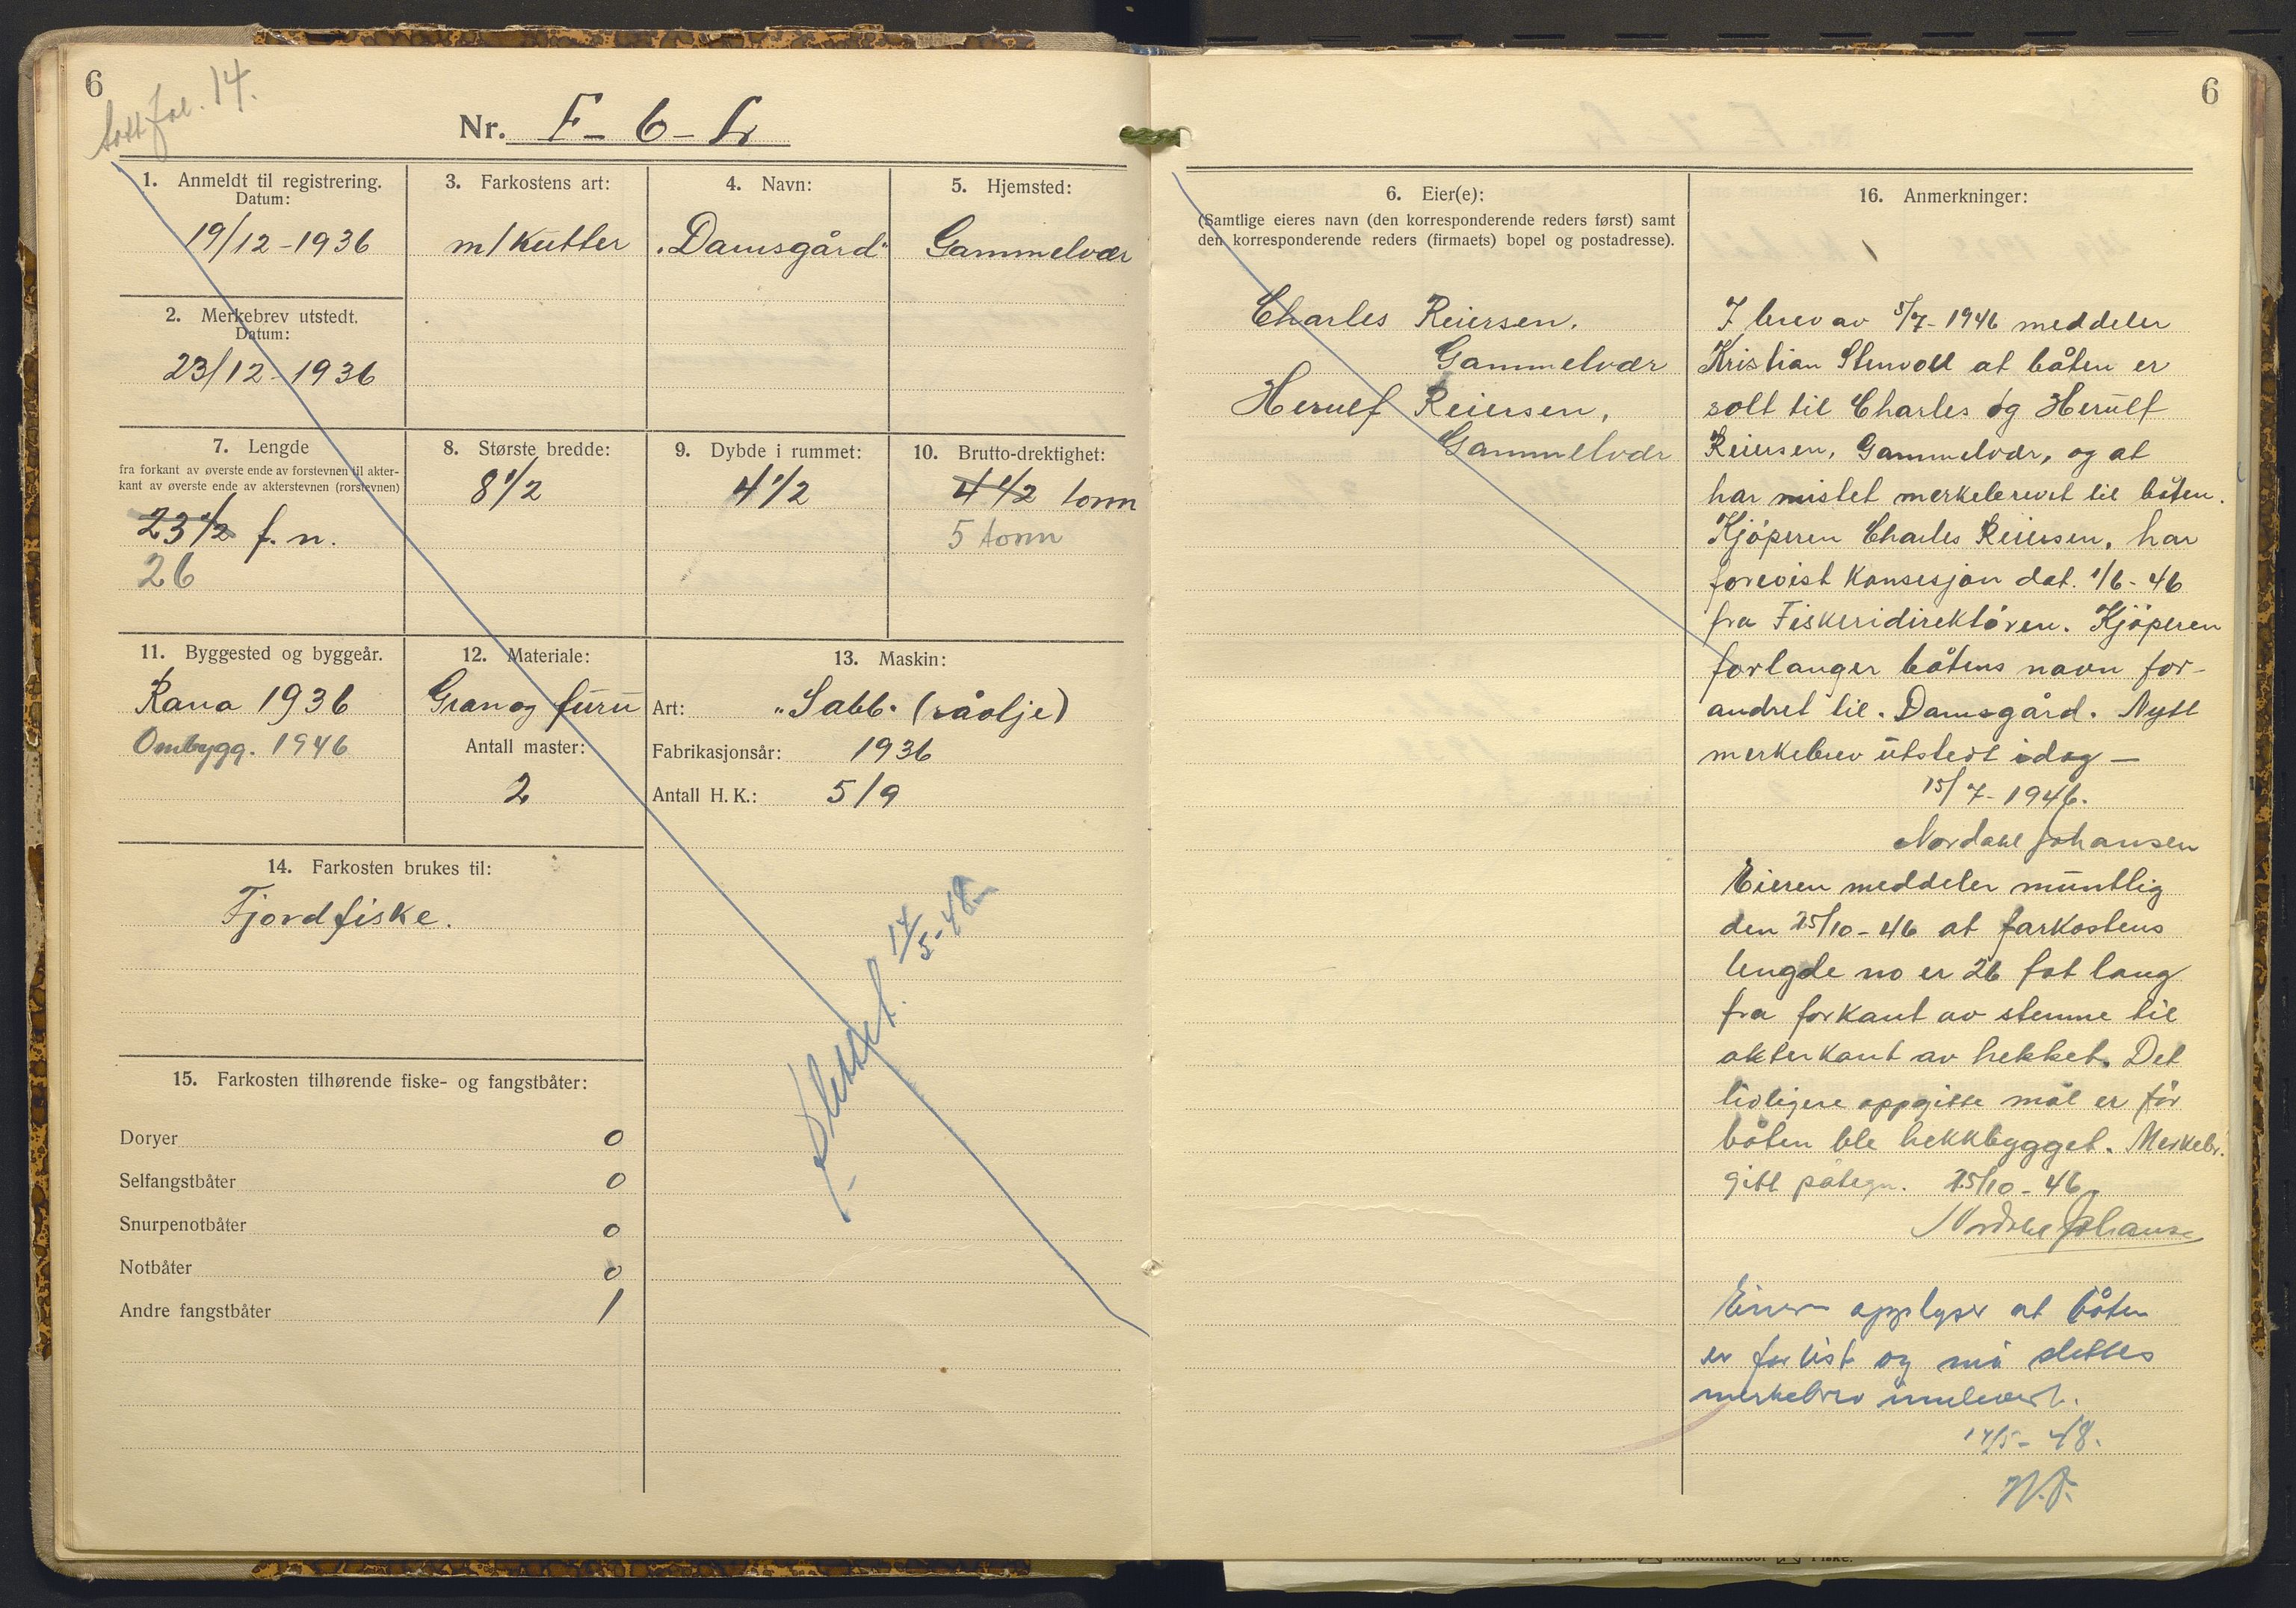 6
fol. 14.
Nr. F-6-
1. Anmeldt til registrering.
Datum:
19/12-1936
2. Merkebrev utstedt.
Datum:
23/12-1936
3. Farkostens art:
m/Kutter
4. Navn:
"Damsgård"
5. Hjemsted:
Gammelvær
7. Lengde
fra forkant av øverste ende av forstevnen til akter-
kant av øverste ende av akterstevnen (rorstevnen)
23 1/2 f. n.
26
8. Største bredde:
8 1/2
9. Dybde i rummet:
4 1/2
10. Brutto-drektighet:
4 1/2 tonn
5 tonn
11. Byggested og byggeår.
Rana 1936
Ombygg. 1946
12. Materiale:
Gran og furu
Antall master:
2
13. Maskin:
Art: "Sabb" (råolje)
Fabrikasjonsår: 1936
Antall H. K.: 5/9
14. Farkosten brukes til:
Fjordfiske.
15. Farkosten tilhørende fiske- og fangstbåter:
Doryer 0
Selfangstbåter 0
Snurpenotbåter 0
Notbåter 0
Andre fangstbåter 1
Slettet. 14/5-48
6
6. Eier(e):
(Samtlige eieres navn (den korresponderende reders først) samt
den korresponderende reders (firmaets) bopel og postadresse).
Charles Reiersen.
Gammelvær
Herulf Reiersen,
Gammelvær
16. Anmerkninger:
I brev av 5/7-1946 meddeler
Kristian Stenvoll at båten er
solt til Charles og Herulf
Reiersen, Gammelvær, og at
har mistet merkebrevet til båten.
Kjöperen Charles Reiersen, har
forevist Konsesjon dat. 1/6-46
fra Fiskeridirektören. Kjöperen
forlanger båtens navn for-
andret til "Damsgård. Nytt
merkebrev utstedt idag —
15/7-1946.
Nordahl Johansen
Eieren meddeler muntlig
den 25/10-46 at farkostens
lengde no er 26 fot lang
fra forkant av stemne til
akterkant av hekket. Det
tidligere oppgitte mål er för
båten ble hekkbygget. Merkebr.
gitt påtegn. 25/10-46
Nordahl Johansen
Eieren opplyser at båten
er forlist og må slettes
merkebrev innlevert.
14/5-48.
N.J.